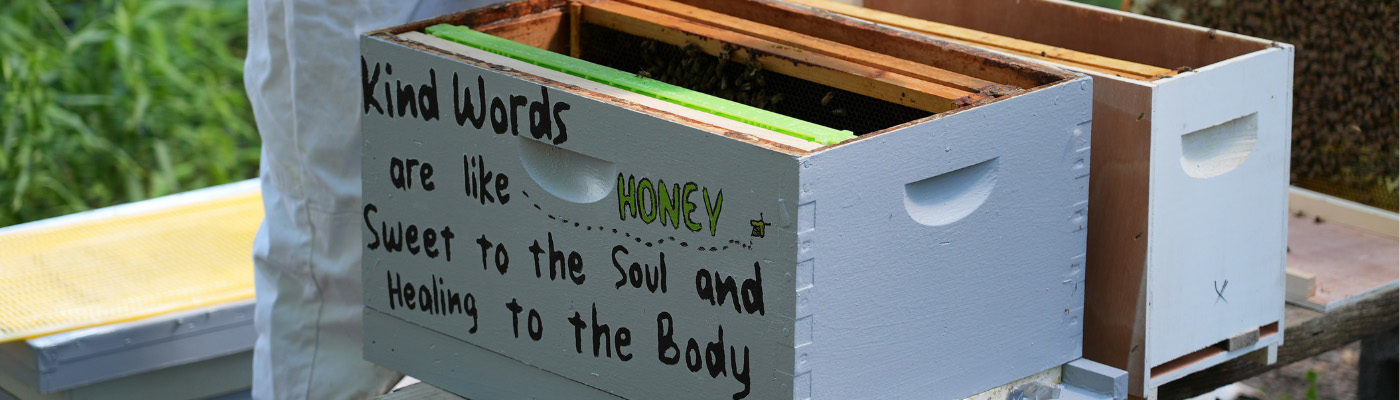 Kind Words
are like HONEY
Sweet to the Soul and
Healing to the Body